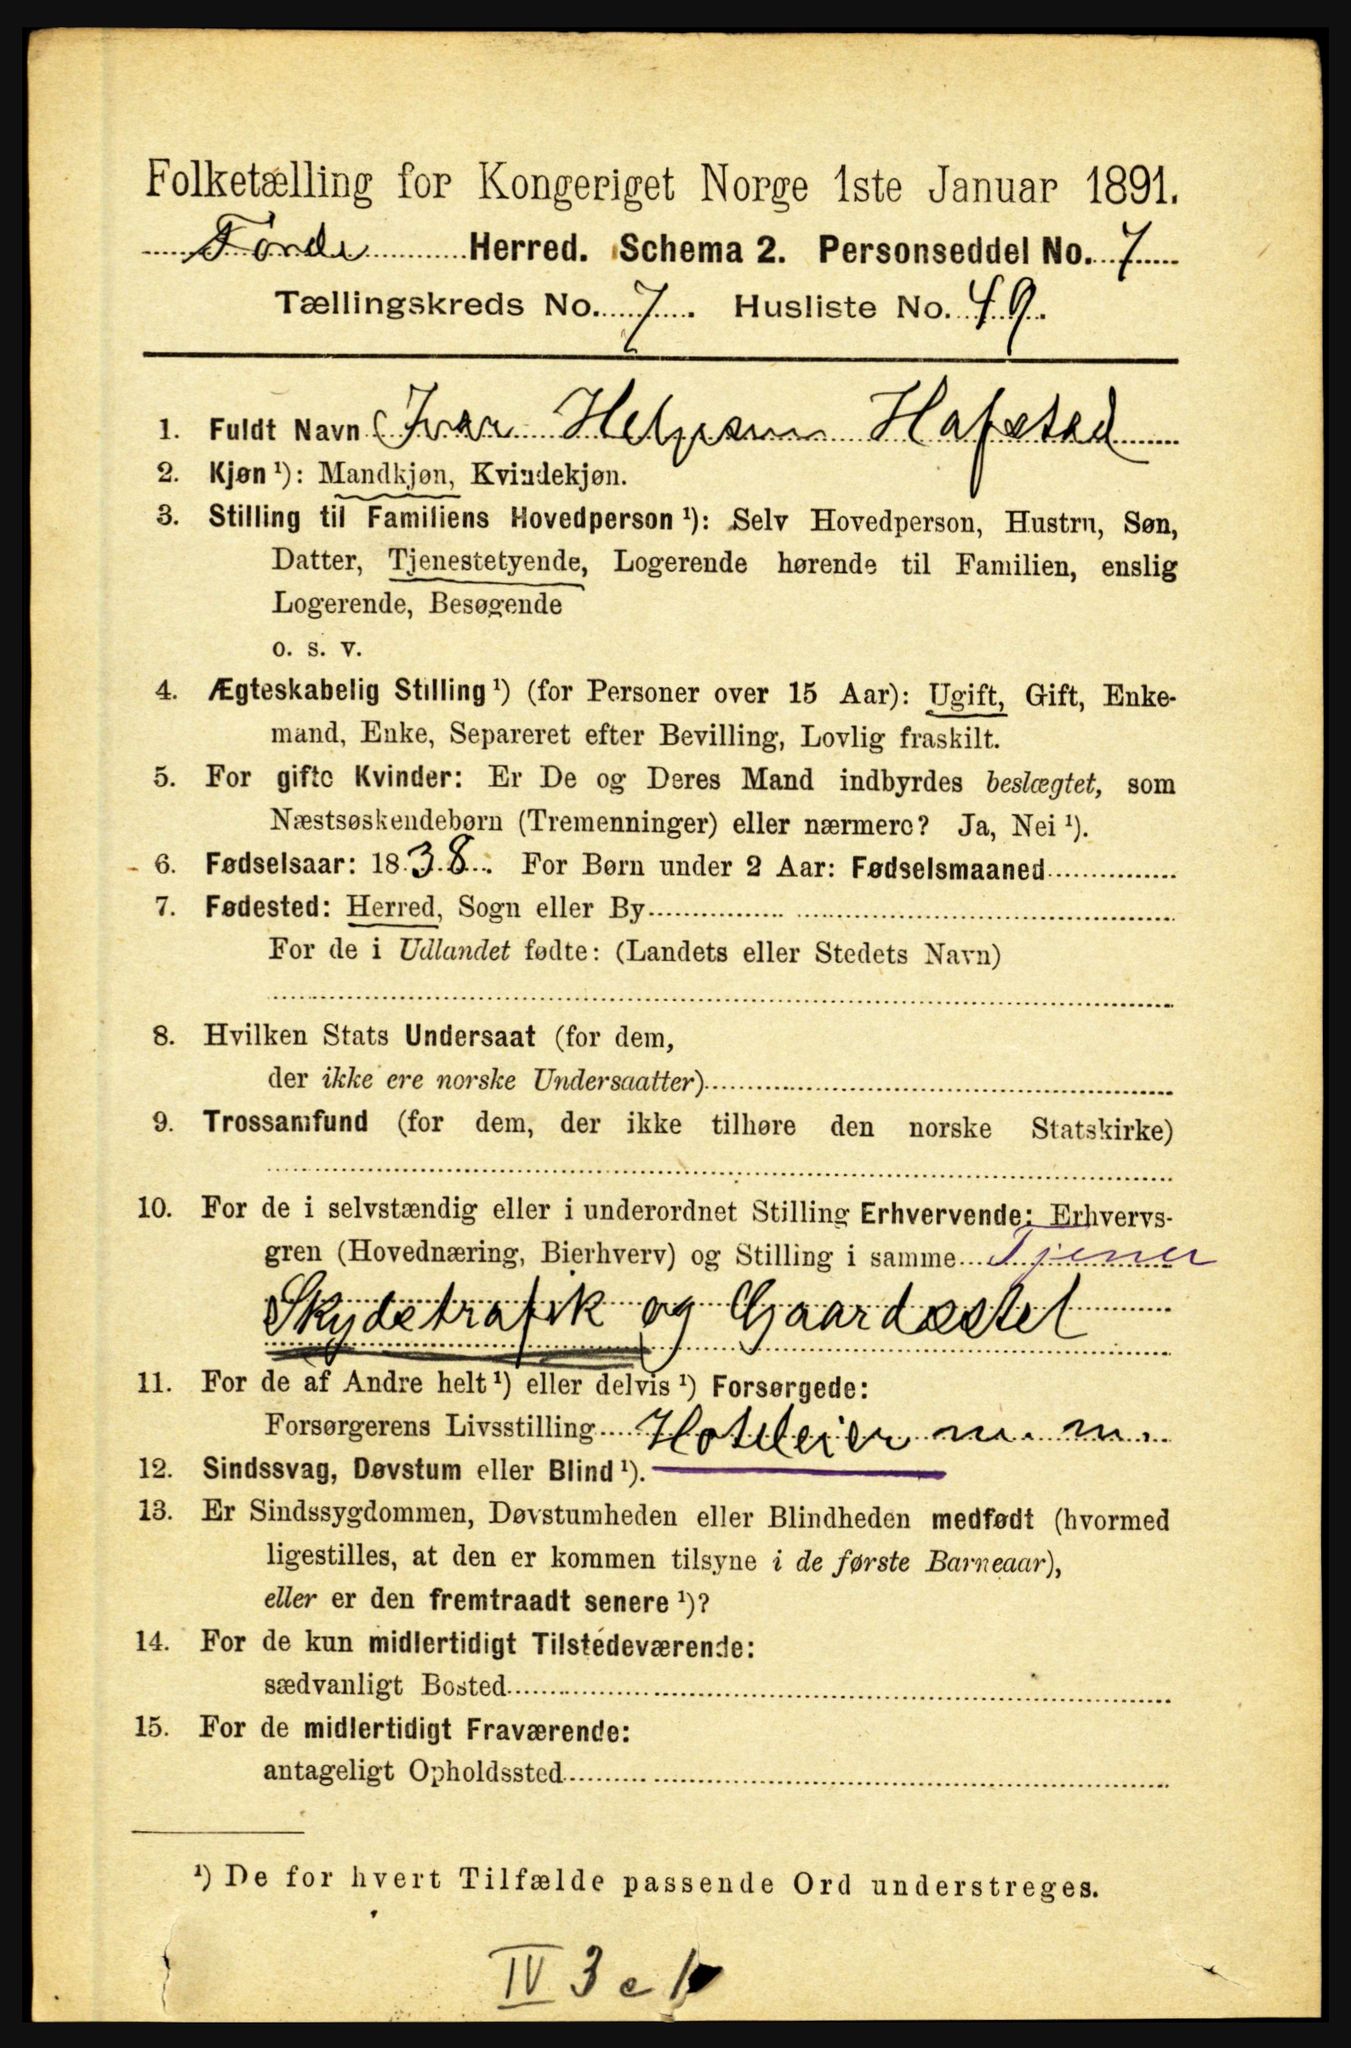 Folketælling for Kongeriget Norge 1ste Januar 1891.
Førde Herred. Schema 2. Personseddel No. 7
Tællingskreds No. 7. Husliste No. 49.
1. Fuldt Navn Ivar Helgesen Hafstad
2. Kjøn ¹): Mandkjøn, Kvindekjøn.
3. Stilling til Familiens Hovedperson ¹): Selv Hovedperson, Hustru, Søn,
Datter, Tjenestetyende, Logerende hørende til Familien, enslig
Logerende, Besøgende
o. s. v.
4. Ægteskabelig Stilling ¹) (for Personer over 15 Aar): Ugift, Gift, Enke-
mand, Enke, Separeret efter Bevilling, Lovlig fraskilt.
5. For gifte Kvinder: Er De og Deres Mand indbyrdes beslægtet, som
Næstsøskendebørn (Tremenninger) eller nærmere? Ja, Nei ¹).
6. Fødselsaar: 1838. For Børn under 2 Aar: Fødselsmaaned
7. Fødested: Herred, Sogn eller By
For de i Udlandet fødte: (Landets eller Stedets Navn)
8. Hvilken Stats Undersaat (for dem,
der ikke ere norske Undersaatter)
9. Trossamfund (for dem, der ikke tilhøre den norske Statskirke)
10. For de i selvstændig eller i underordnet Stilling Erhvervende: Erhvervs-
gren (Hovednæring, Bierhverv) og Stilling i samme Tjener
Skydstrafik og Gaardsstel
11. For de af Andre helt ¹) eller delvis ¹) Forsørgede:
Forsørgerens Livsstilling Hoteleier m. m.
12. Sindssvag, Døvstum eller Blind ¹).
13. Er Sindssygdommen, Døvstumheden eller Blindheden medfødt (hvormed
ligestilles, at den er kommen tilsyne i de første Barneaar),
eller er den fremtraadt senere ¹)?
14. For de kun midlertidigt Tilstedeværende:
sædvanligt Bosted
15. For de midlertidigt Fraværende:
antageligt Opholdssted
¹) De for hvert Tilfælde passende Ord understreges.
IV 3 c 1